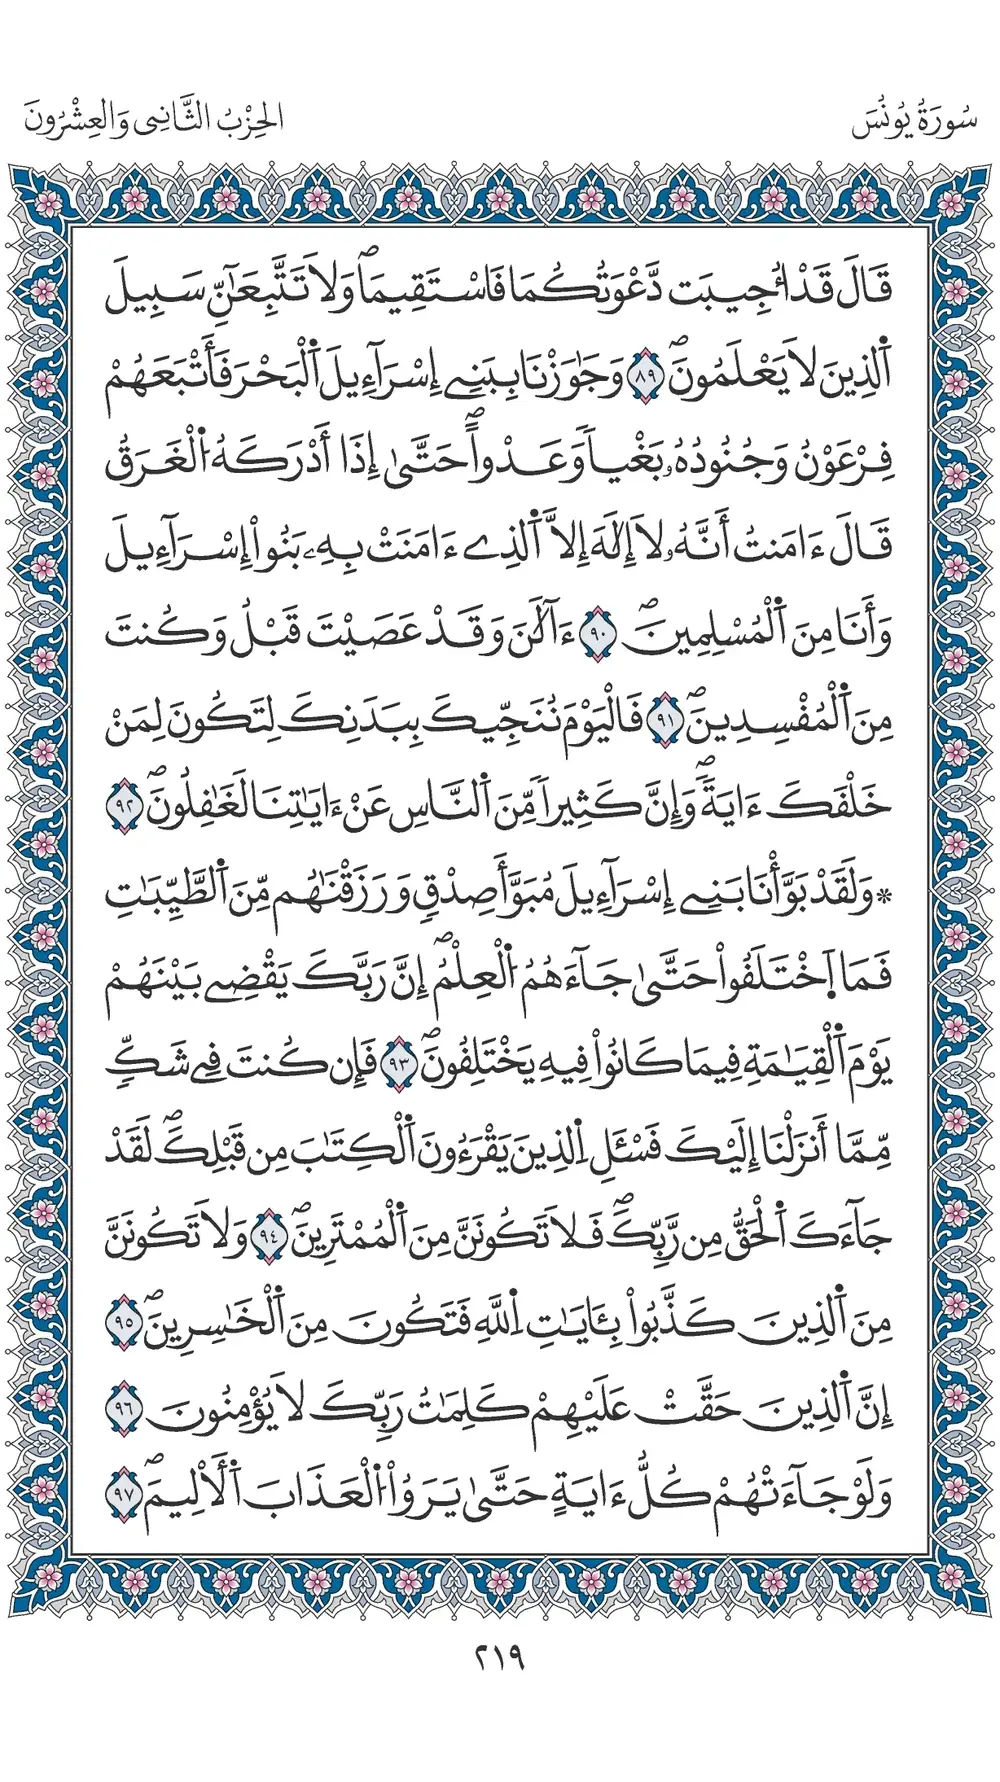 سُورَةُ يُونُسَ
الحِزْبُ الثَّانِي وَالعِشْرُونَ
قَالَ قَدُ ا۟جِيبَت دَّعْوَتُكُمَا فَاسْتَقِيمَاۖ وَلَا تَتَّبِعَٰٓنِّ سَبِيلَ
اَ۬لذِينَ لَا يَعْلَمُونَۖ ٨٩ وَجَٰوَزْنَا بِبَنِےٓ إِسْرَآءِيلَ اَ۬لْبَحْرَ فَأَتْبَعَهُمْ
فِرْعَوْنُ وَجُنُودُهُۥ بَغْياٗ وَعَدْواًۖ حَتَّىٰٓ إِذَآ أَدْرَكَهُ اُ۬لْغَرَقُ
قَالَ ءَامَنتُ أَنَّهُۥ لَآ إِلَٰهَ إِلَّا اَ۬لذِےٓ ءَامَنَتْ بِهِۦ بَنُوٓاْ إِسْرَآءِيلَ
وَأَنَا مِنَ اَ۬لْمُسْلِمِينَۖ ٩٠ ءَآلَٰنَ وَقَدْ عَصَيْتَ قَبْلُ وَكُنتَ
مِنَ اَ۬لْمُفْسِدِينَۖ ٩١ فَالْيَوْمَ نُنَجِّيكَ بِبَدَنِكَ لِتَكُونَ لِمَنْ
خَلْفَكَ ءَايَةٗۖ وَإِنَّ كَثِيراٗ مِّنَ اَ۬لنَّاسِ عَنْ ءَايَٰتِنَا لَغَٰفِلُونَۖ ٩٢
* وَلَقَدْ بَوَّأْنَا بَنِےٓ إِسْرَآءِيلَ مُبَوَّأَ صِدْقٖ وَرَزَقْنَٰهُم مِّنَ اَ۬لطَّيِّبَٰتِ
فَمَا اَ۪خْتَلَفُواْ حَتَّىٰ جَآءَهُمُ اُ۬لْعِلْمُۖ إِنَّ رَبَّكَ يَقْضِے بَيْنَهُمْ
يَوْمَ اَ۬لْقِيَٰمَةِ فِيمَا كَانُواْ فِيهِ يَخْتَلِفُونَۖ ٩٣ فَإِن كُنتَ فِے شَكّٖ
مِّمَّآ أَنزَلْنَآ إِلَيْكَ فَسْـَٔلِ اِ۬لذِينَ يَقْرَءُونَ اَ۬لْكِتَٰبَ مِن قَبْلِكَۖ لَقَدْ
جَآءَكَ اَ۬لْحَقُّ مِن رَّبِّكَۖ فَلَا تَكُونَنَّ مِنَ اَ۬لْمُمْتَرِينَۖ ٩٤ وَلَا تَكُونَنَّ
مِنَ اَ۬لذِينَ كَذَّبُواْ بِـَٔايَٰتِ اِ۬للَّهِ فَتَكُونَ مِنَ اَ۬لْخَٰسِرِينَۖ ٩٥
إِنَّ اَ۬لذِينَ حَقَّتْ عَلَيْهِمْ كَلِمَٰتُ رَبِّكَ لَا يُؤْمِنُونَ ٩٦
وَلَوْ جَآءَتْهُمْ كُلُّ ءَايَةٍ حَتَّىٰ يَرَوُاْ اُ۬لْعَذَابَ اَ۬لْأَلِيمَۖ ٩٧
٢١٩